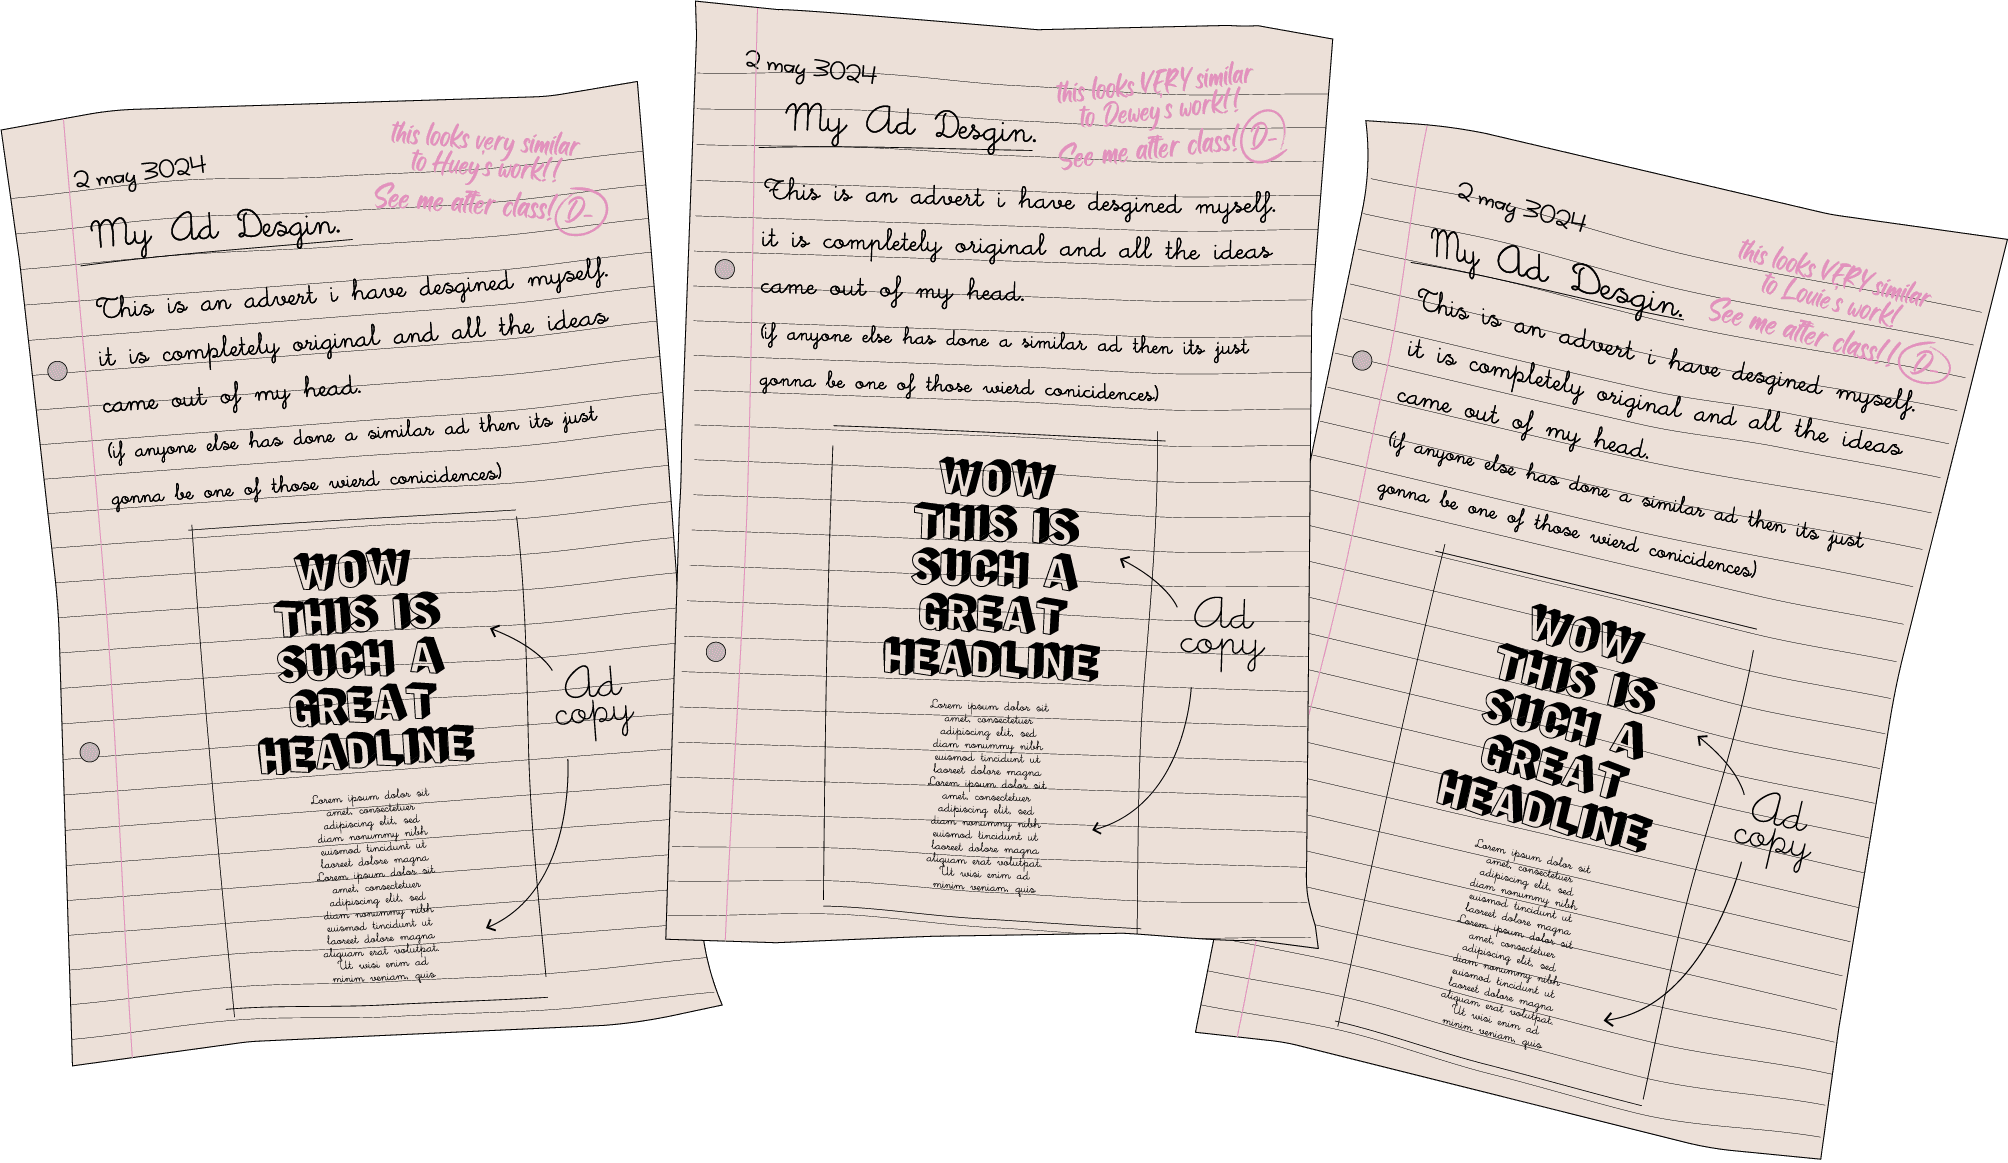 2 may 3024
this looks very similar
to Huey's work!!
See me after class! D-
My Ad Desgin.
This is an advert i have desgined myself.
it is completely original and all the ideas
came out of my head.
(if anyone else has done a similar ad then its just
gonna be one of those wierd conicidences)
WOW
THIS IS
SUCH A
GREAT
HEADLINE
Ad
copy
Lorem ipsum dolor sit
amet, consectetuer
adipiscing elit, sed
diam nonummy nibh
euismod tincidunt ut
laoreet dolore magna
Lorem ipsum dolor sit
amet, consectetuer
adipiscing elit, sed
diam nonummy nibh
euismod tincidunt ut
laoreet dolore magna
aliquam erat volutpat.
Ut wisi enim ad
minim veniam, quis
2 may 3024
this looks VERY similar
to Dewey's work!!
See me after class! D-
My Ad Desgin.
This is an advert i have desgined myself.
it is completely original and all the ideas
came out of my head.
(if anyone else has done a similar ad then its just
gonna be one of those wierd conicidences)
WOW
THIS IS
SUCH A
GREAT
HEADLINE
Ad
copy
Lorem ipsum dolor sit
amet, consectetuer
adipiscing elit, sed
diam nonummy nibh
euismod tincidunt ut
laoreet dolore magna
Lorem ipsum dolor sit
amet, consectetuer
adipiscing elit, sed
diam nonummy nibh
euismod tincidunt ut
laoreet dolore magna
aliquam erat volutpat.
Ut wisi enim ad
minim veniam, quis
2 may 3024
this looks VERY similar
to Louie's work!
See me after class!! D
My Ad Desgin.
This is an advert i have desgined myself.
it is completely original and all the ideas
came out of my head.
(if anyone else has done a similar ad then its just
gonna be one of those wierd conicidences)
WOW
THIS IS
SUCH A
GREAT
HEADLINE
Ad
copy
Lorem ipsum dolor sit
amet, consectetuer
adipiscing elit, sed
diam nonummy nibh
euismod tincidunt ut
laoreet dolore magna
Lorem ipsum dolor sit
amet, consectetuer
adipiscing elit, sed
diam nonummy nibh
euismod tincidunt ut
laoreet dolore magna
aliquam erat volutpat.
Ut wisi enim ad
minim veniam, quis